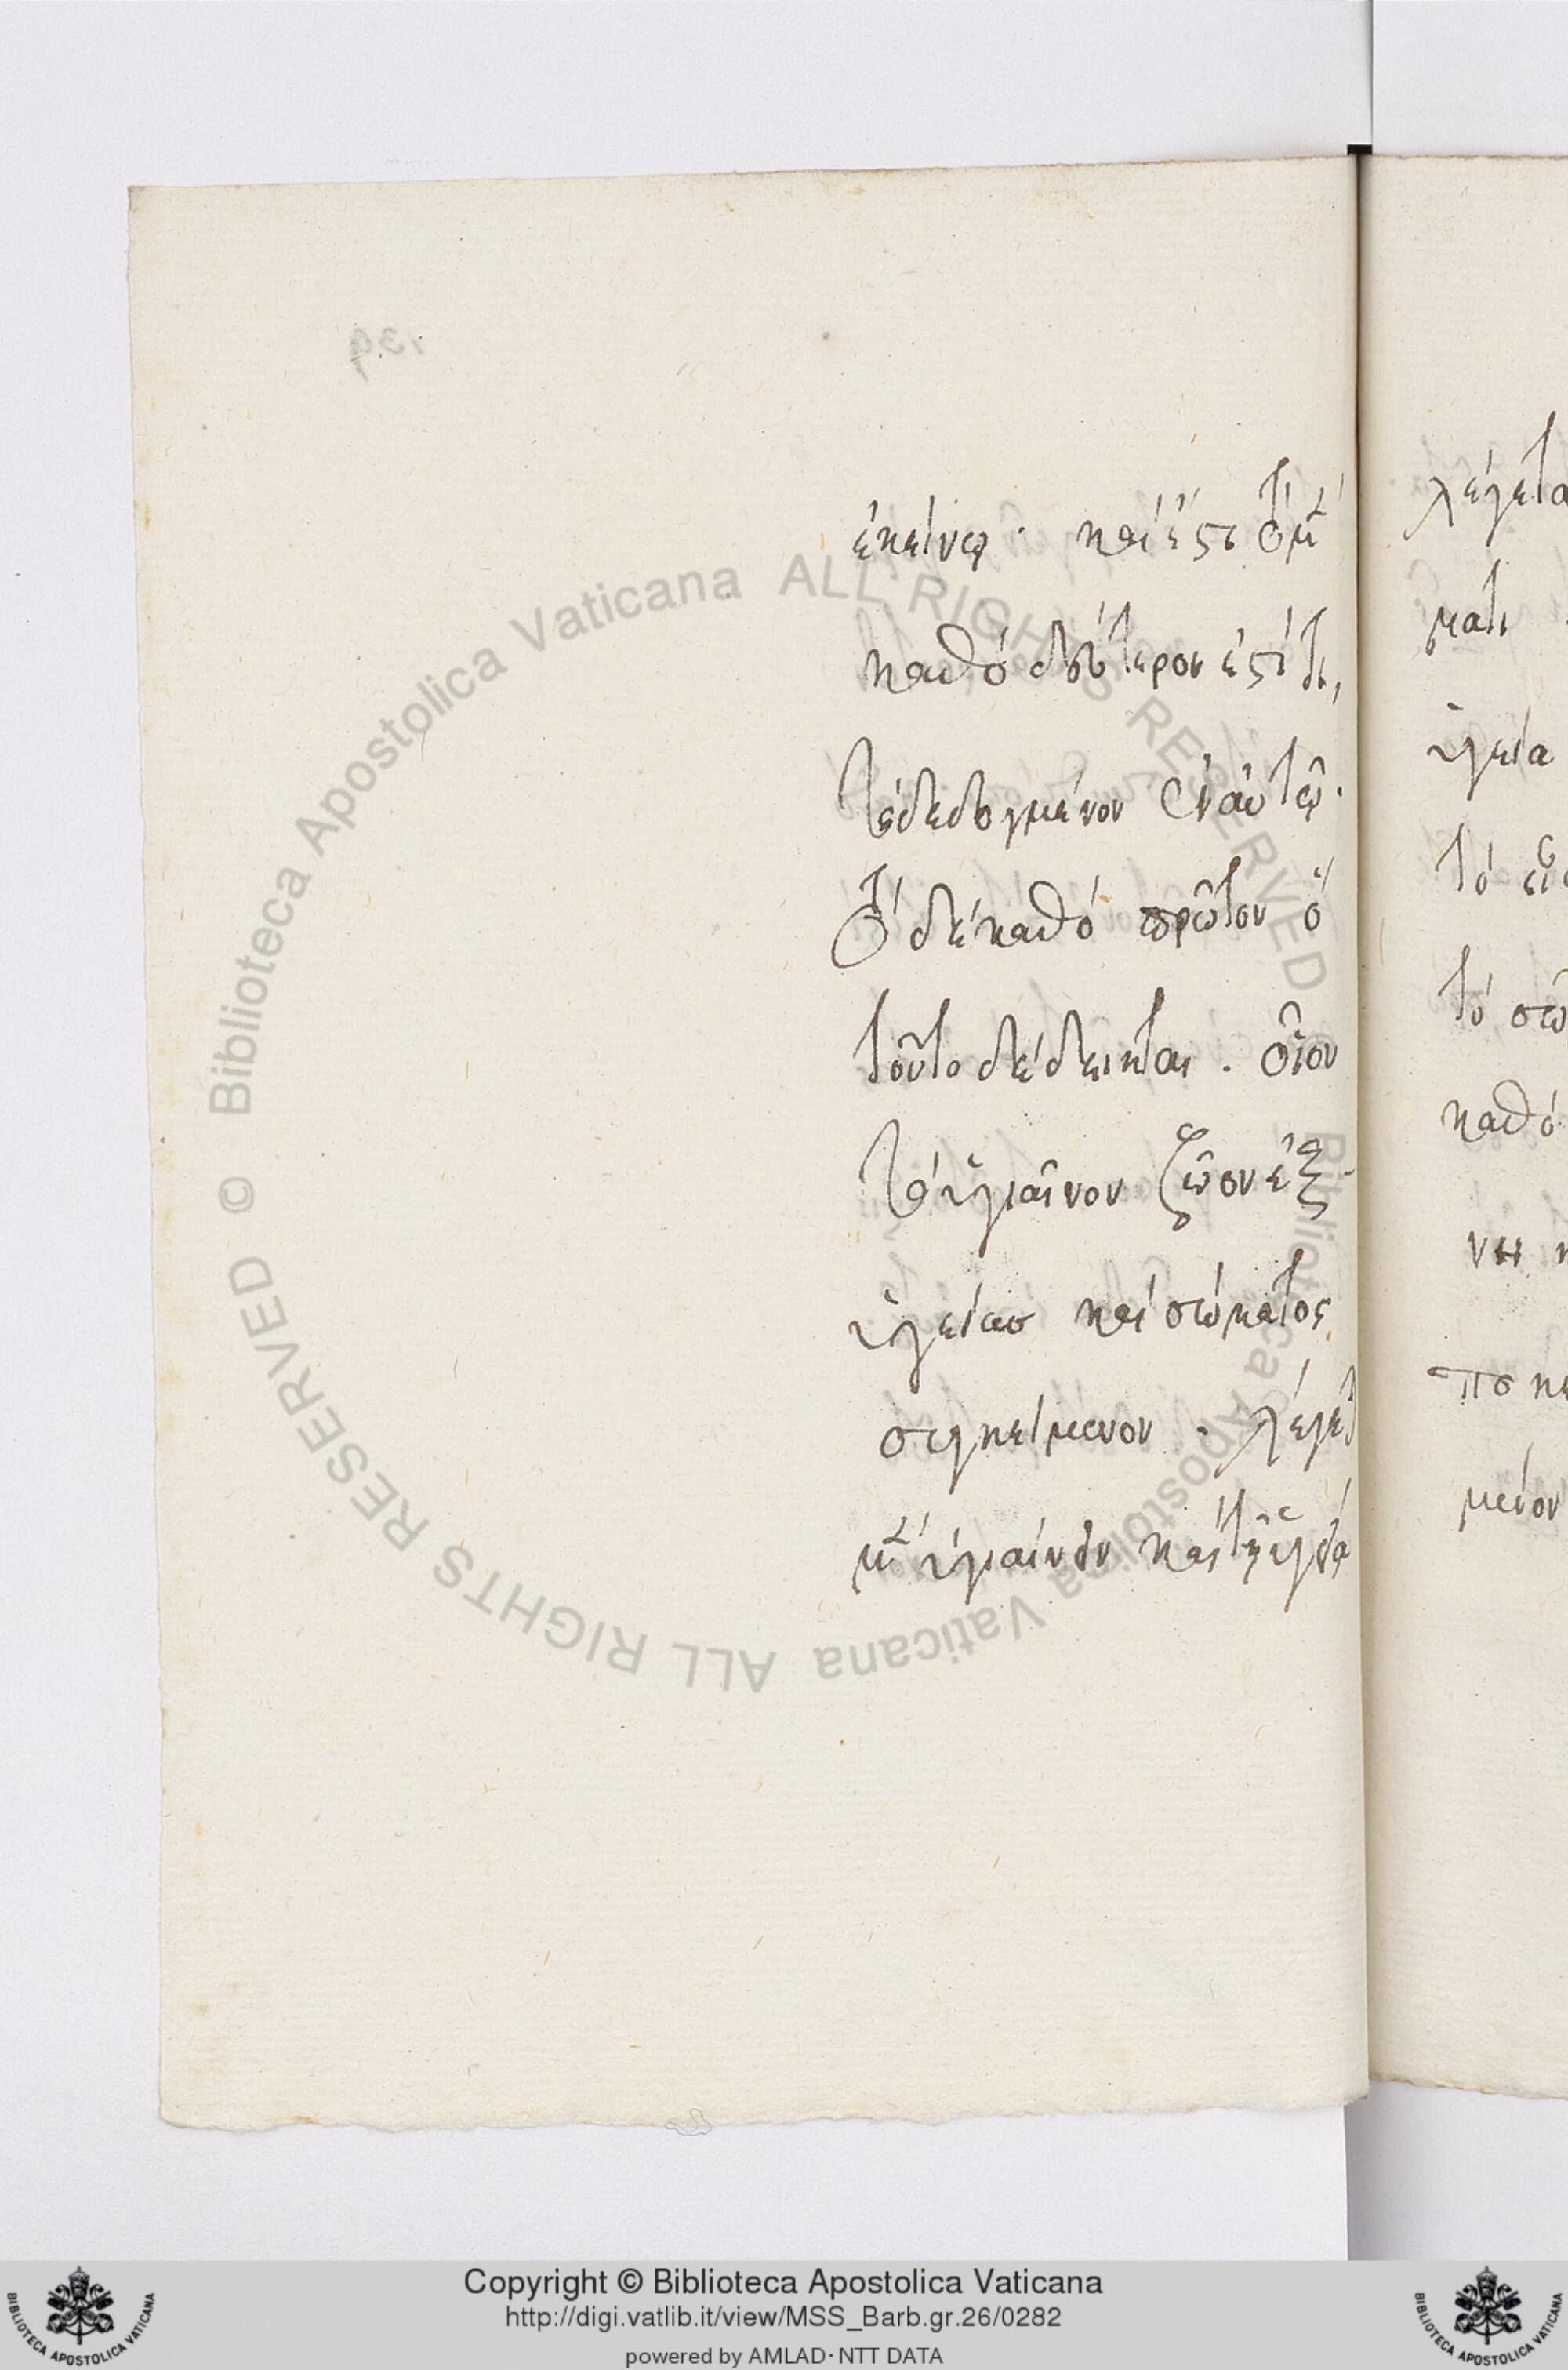 ἐκείνῳ · καὶ ἔστι τὸ μὲν
καθὸ δεύτερον ἐστί τι,
τὸ δεδεγμένον ἐν αὑτῷ ·
τὸ δὲ καθὸ πρῶτον ὃ
τοῦτο δέδεικται . οἷον
τὸ ὑγιαῖνον ζῶον ἐξ
ὑγείας καὶ σώματος
συγκείμενον · λέγε
μὲν ὑγιαίνειν καὶ τῇ ὑγεία
λέγετα
ματι
ὑγεία
τὸ
τὸ σώ
καθὸ
νη
μενον
139
© Biblioteca Apostolica Vaticana ALL RIGHTS RESERVED
© Biblioteca Apostolica Vaticana ALL RIGHTS RESERVED
Copyright © Biblioteca Apostolica Vaticana
http://digi.vatlib.it/view/MSS_Barb.gr.26/0282
powered by AMLAD·NTT DATA
BIBLIOTECA APOSTOLICA VATICANA
BIBLIOTECA APOSTOLICA VATICANA